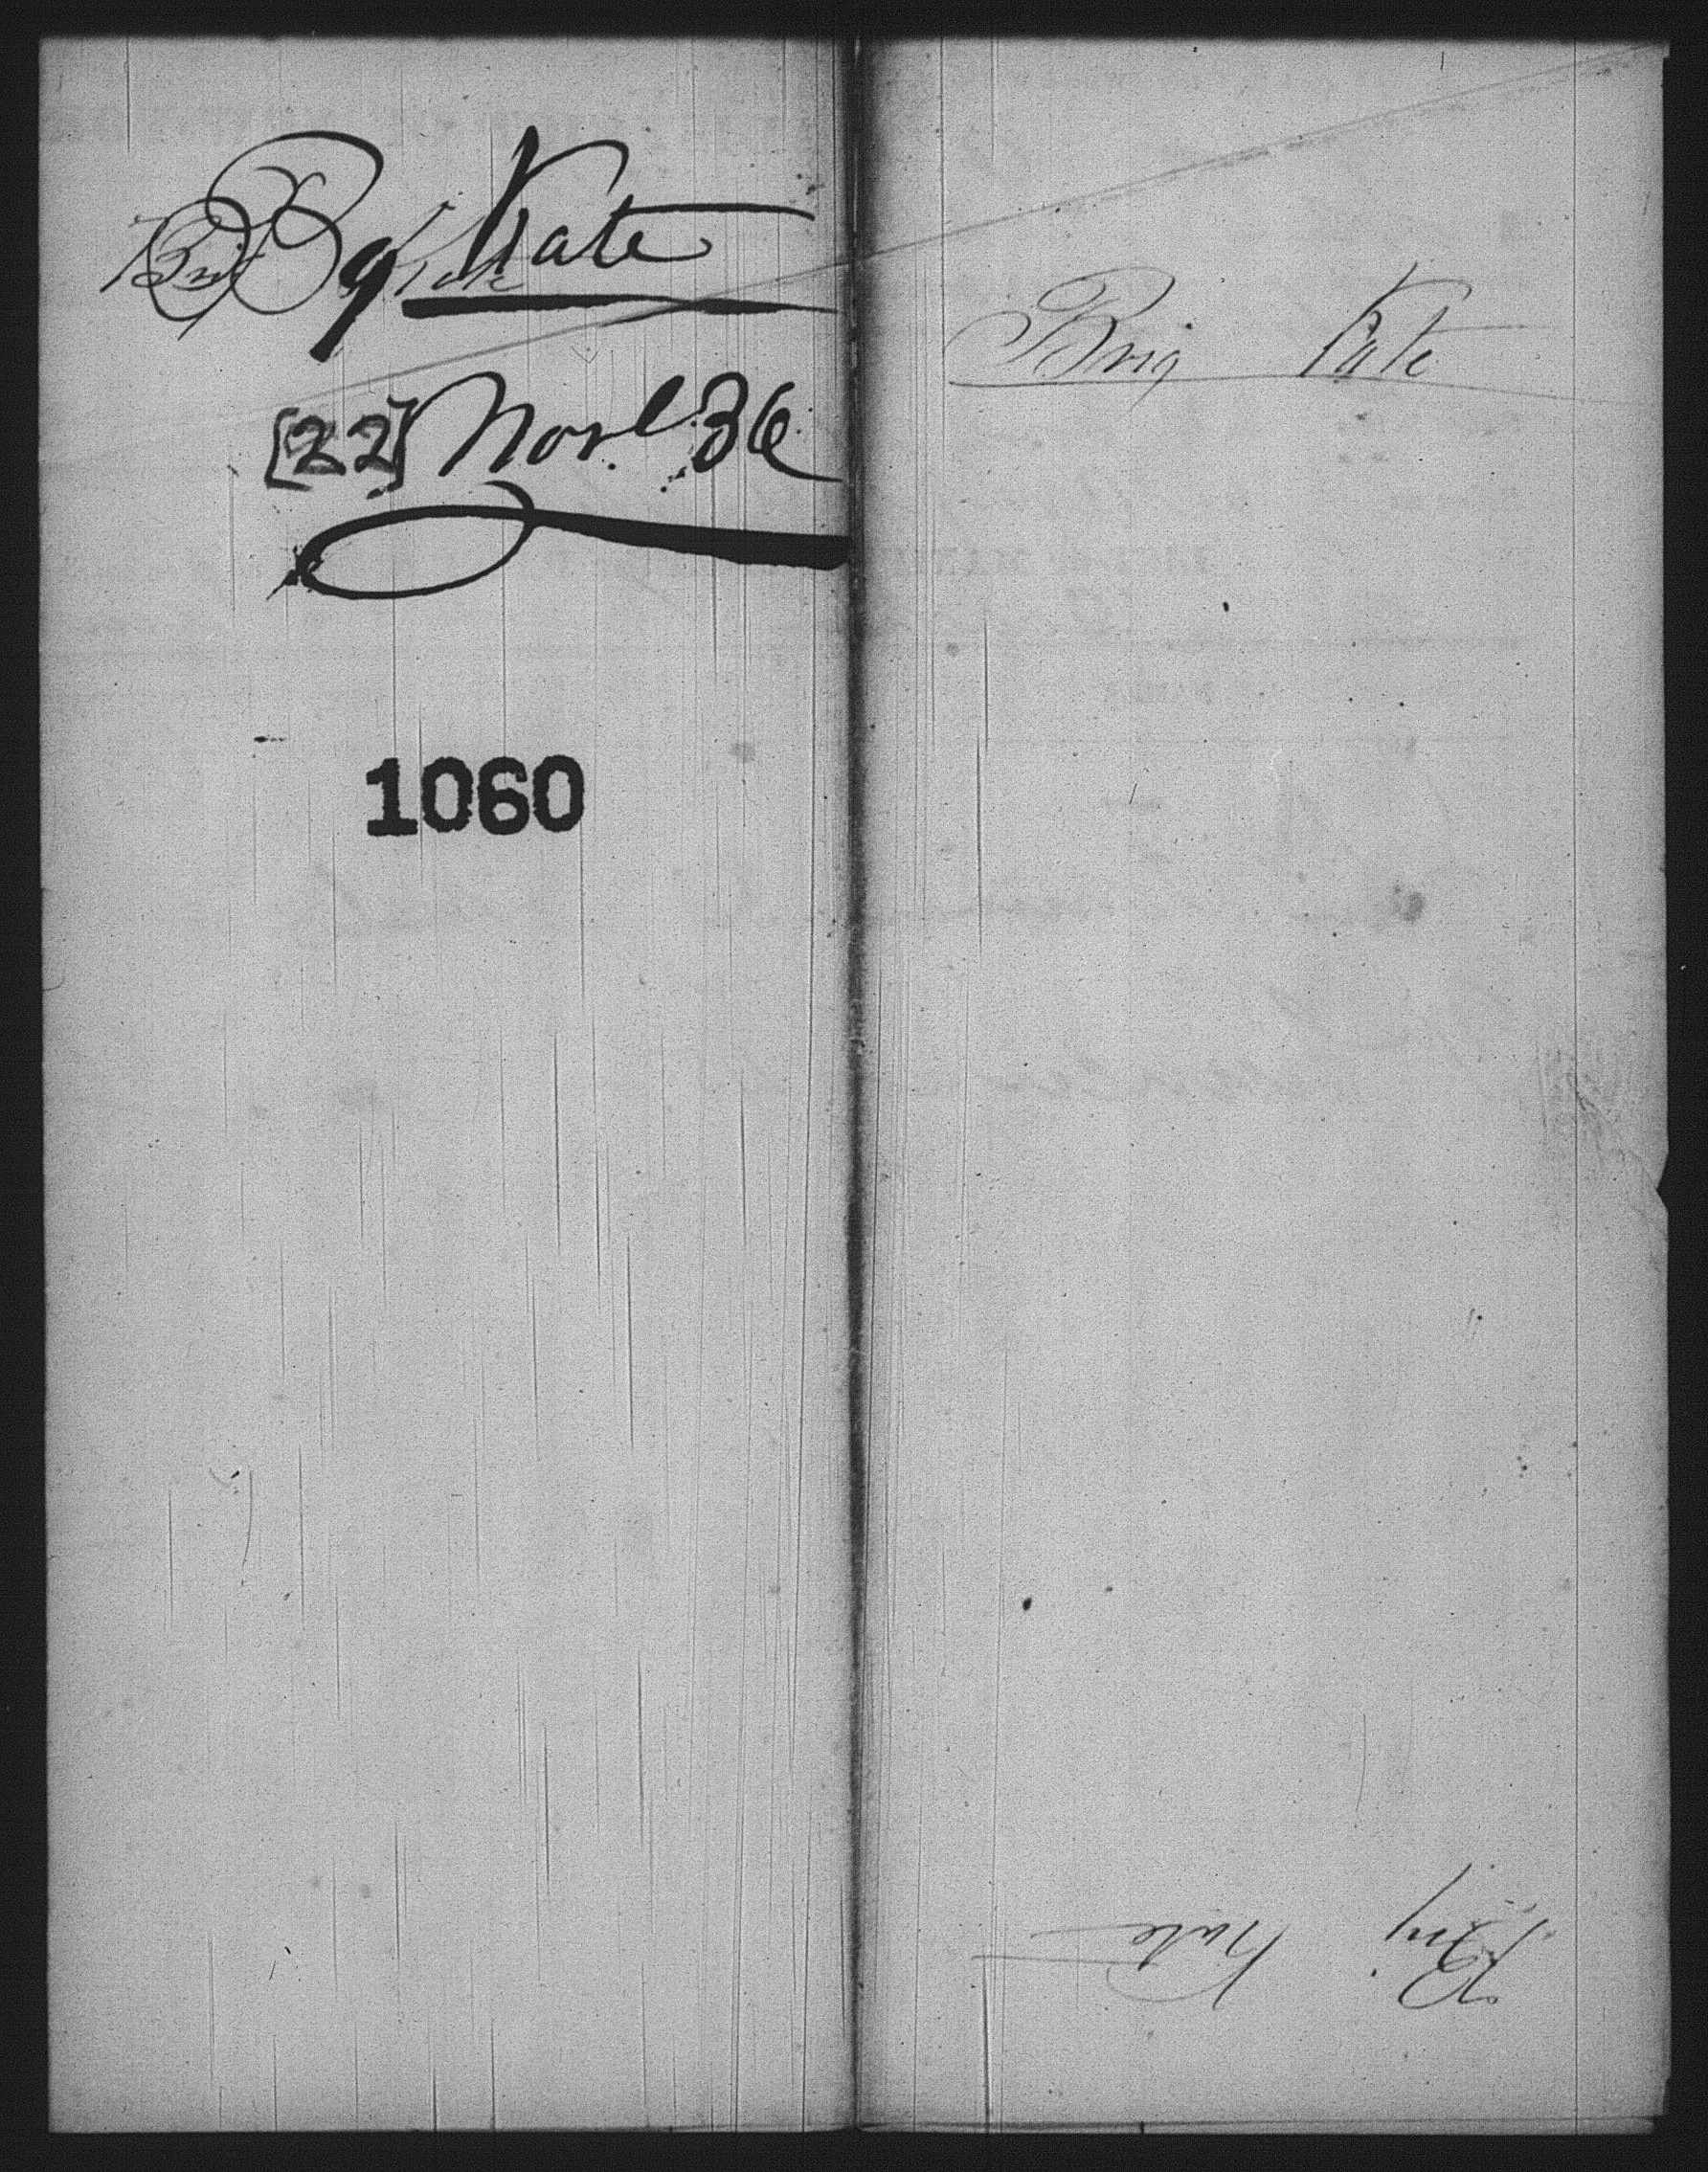 Bg Kate
Brig Kate
[22] Novr. 36
1060
Brig Kate
Brig Kate